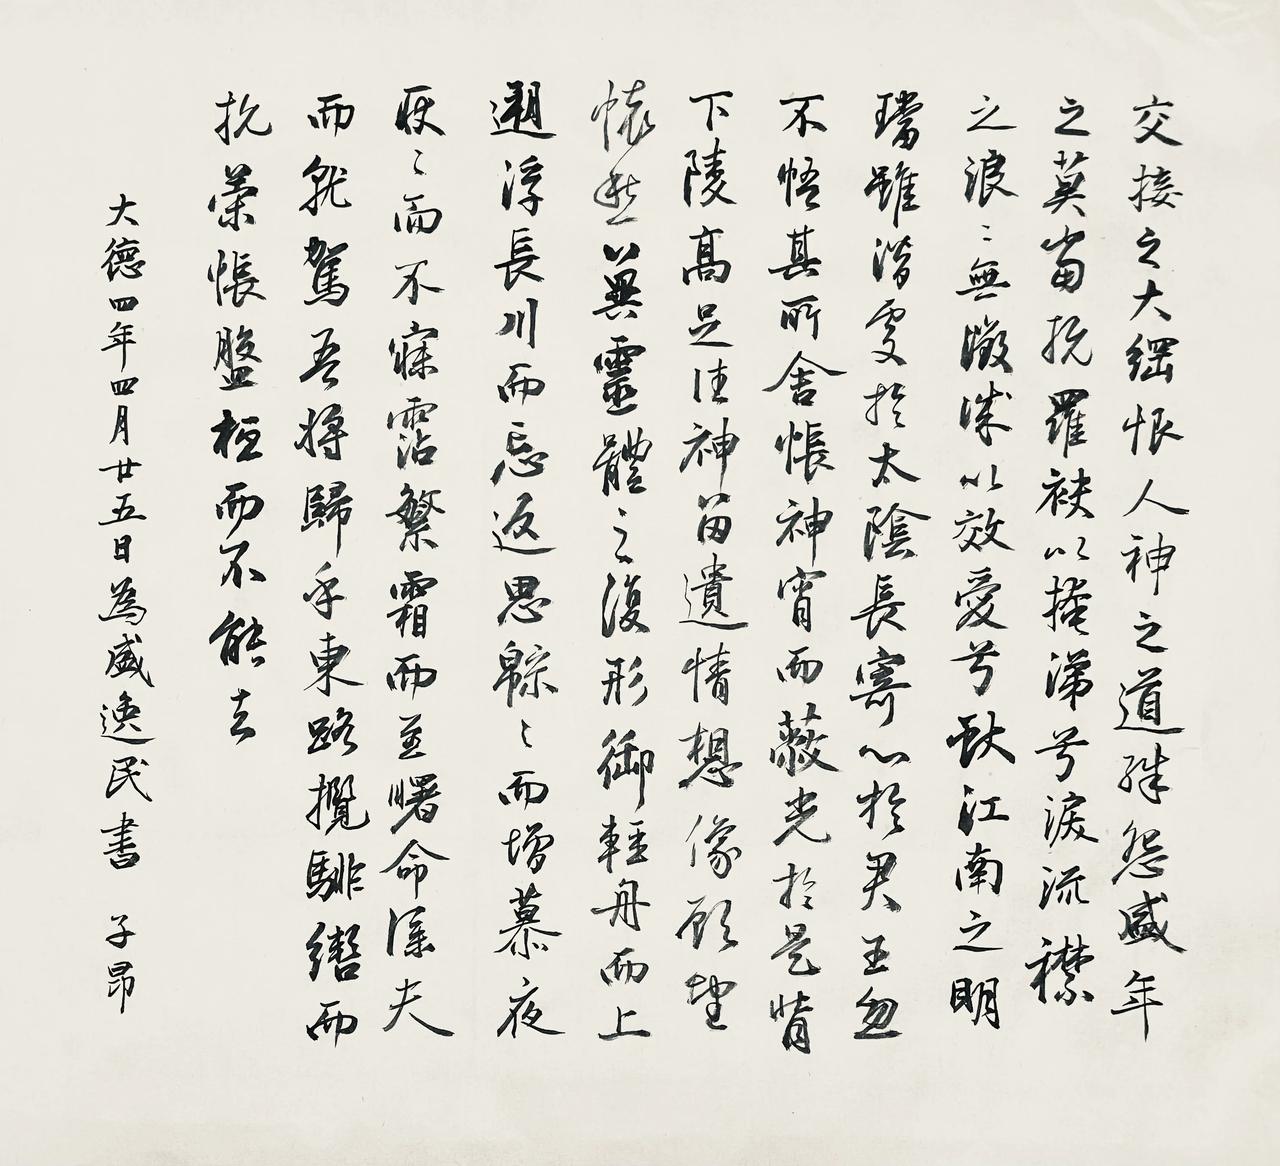 交接之大綱恨人神之道殊怨盛年
之莫當抗羅袂以掩涕兮淚流襟
之浪〻無微誠以效愛兮献江南之明
璫雖潛處於太陰長寄心於君王忽
不悟其所舍悵神宵而蔽光於是背
下陵高足往神留遺情想像顧望
懷愁冀靈體之復形御輕舟而上
遡浮長川而忘返思緜〻而增慕夜
耿〻而不寐霑繁霜而至曙命僕夫
而就駕吾將歸乎東路攬騑轡而
抗策悵盤桓而不能去
大德四年四月廿五日為盛逸民書 子昂